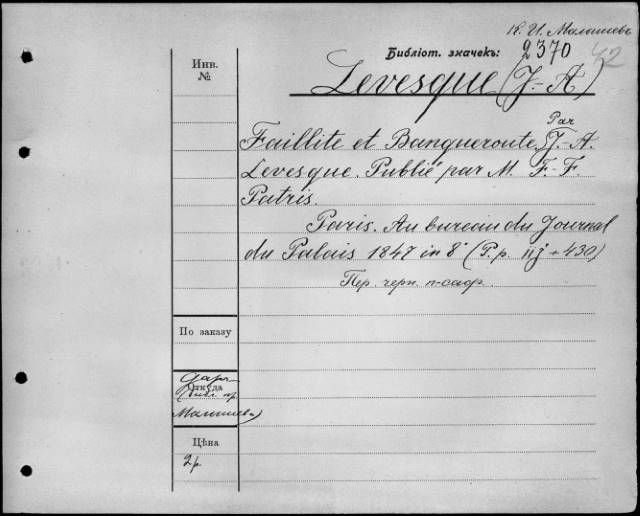 К. И. Малышевъ
Библіот. значекъ: 2370
42
Инв.
№
Levesque (J.-A)
Faillite et Banqueroute, Par J.-A.
Levesque. Publié par M. F.-F.
Patris.
Paris. Au bureau du Journal
du Palais 1847 in 8° (P.p. iij + 430)
Пер. черн. п-саф.
По заказу
Откуда
Даръ
Библ. пр.
Малышева
Цѣна
2 р.